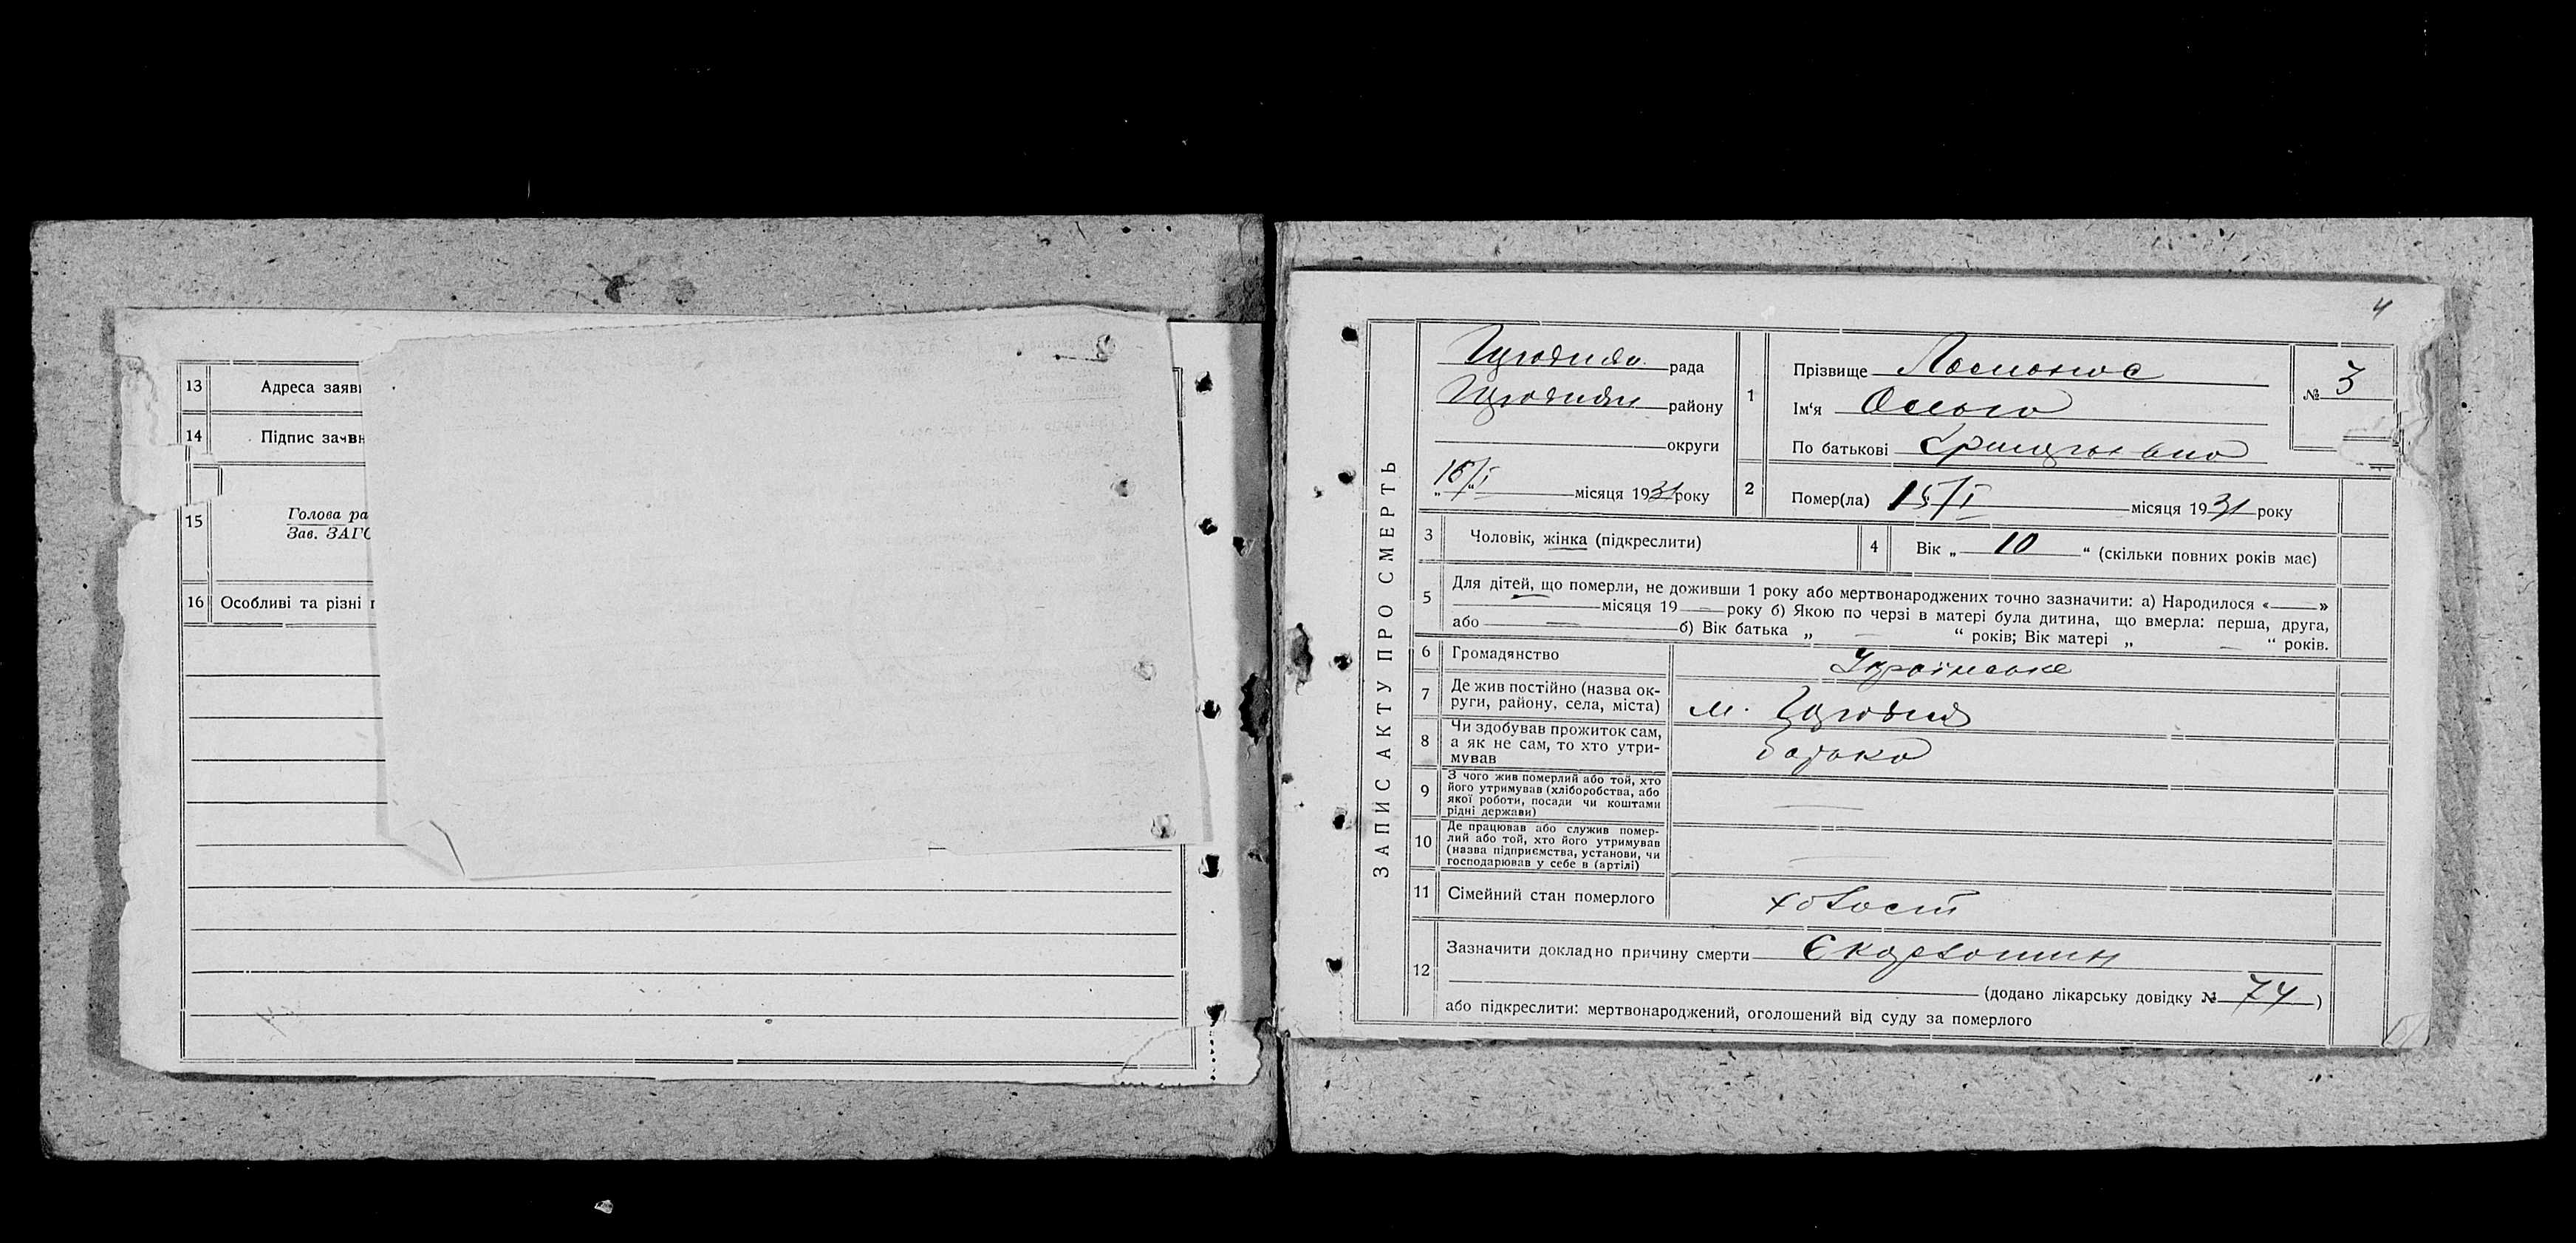 13 Адреса заяв
14 Підпис заявн
15 Голова ра
Зав. ЗАГС
16 Особливі та різні п
4
ЗАПИС АКТУ ПРО СМЕРТЬ
рада
району
округи
16/I місяця 1931 року
1 Прізвище
Ім‘я Ольга
По батькові
№ 3
2 Помер(ла) 15/I місяця 1931 року
3 Чоловік, жінка (підкреслити)
4 Вік „ 10 “ (скільки повних років має)
5 Для дітей, що померли, не доживши 1 року або мертвонароджених точно зазначити: а) Народилося « — »
— місяця 19 — року б) Якою по черзі в матері була дитина, що вмерла: перша, друга,
або — б) Вік батька „ — “ років; Вік матері „ — “ років.
6 Громадянство Українське
7 Де жив постійно (назва ок-
руги, району, села, міста) м.
8 Чи здобував прожиток сам,
а як не сам, то хто утри-
мував батько
9 З чого жив померлий або той, хто
його утримував (хліборобства, або
якої роботи, посади чи коштами
рідні держави) —
10 Де працював або служив помер-
лий або той, хто його утримував
(назва підприємства, установи, чи
господарював у себе в (артілі) —
11 Сімейний стан померлого холост
12 Зазначити докладно причину смерти
(додано лікарську довідку № 74 )
або підкреслити: мертвонароджений, оголошений від суду за померлого